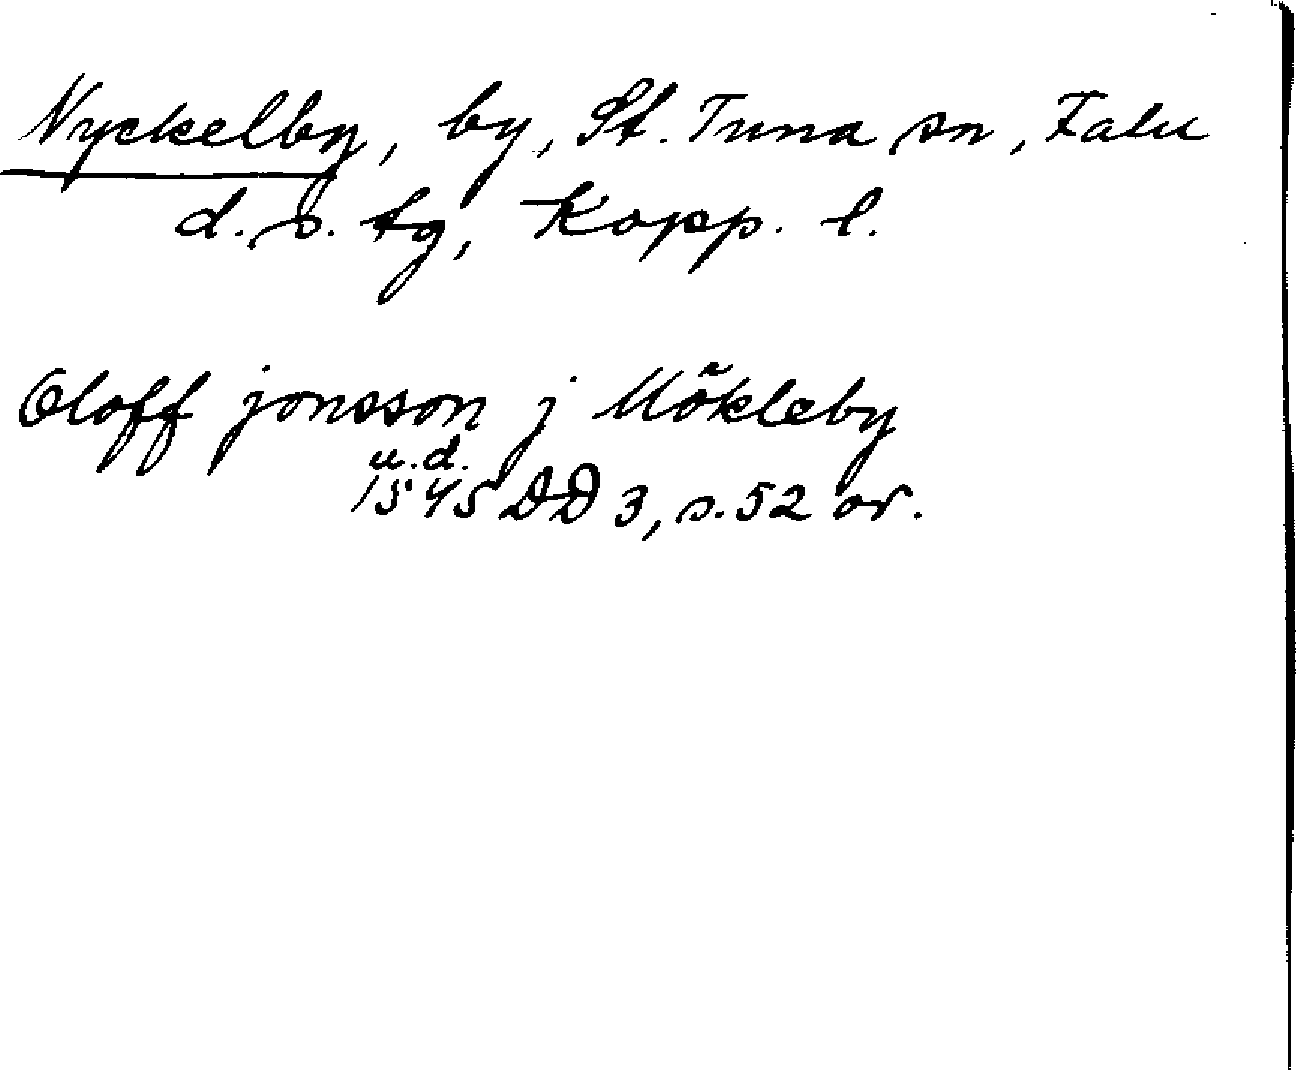 Nyckelby, by, St. Tuna sn, Falu
d. s. tg, Kopp. l.
Oloff jonsson j Mökleby
u.d.
1545 DD 3, s. 52 or.